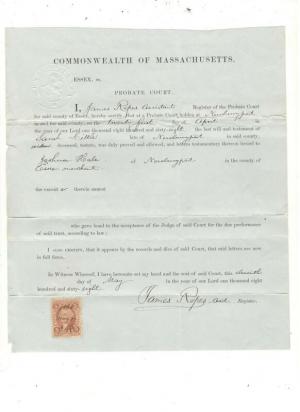 COMMONWEALTH OF MASSACHUSETTS.
ESSEX, ss.
PROBATE COURT.
I, James Ropes Assistant Register of the Probate Court
for said county of Essex, hereby certify that at a Probate Court holden at Newburyport
in and for said county, on the twenty first day of April in the
year of our Lord one thousand eight hundred and sixty-eight the last will and testament of
Sarah late of Newburyport
deceased, testate, was duly proved and allowed, and letters testamentary thereon issued to
Joshua Hale of Newburyport in the county of
Essex merchant
the executor therein named
who gave bond to the acceptance of the Judge of said Court for the due performance
of said trust, according to law;
I also certify, that it appears by the records and files of said Court, that said letters are now
in full force.
In Witness Whereof, I have hereunto set my hand and the seal of said Court, this seventh
day of May in the year of our Lord one thousand eight
hundred and sixty-eight
James Ropes Asst. Register.